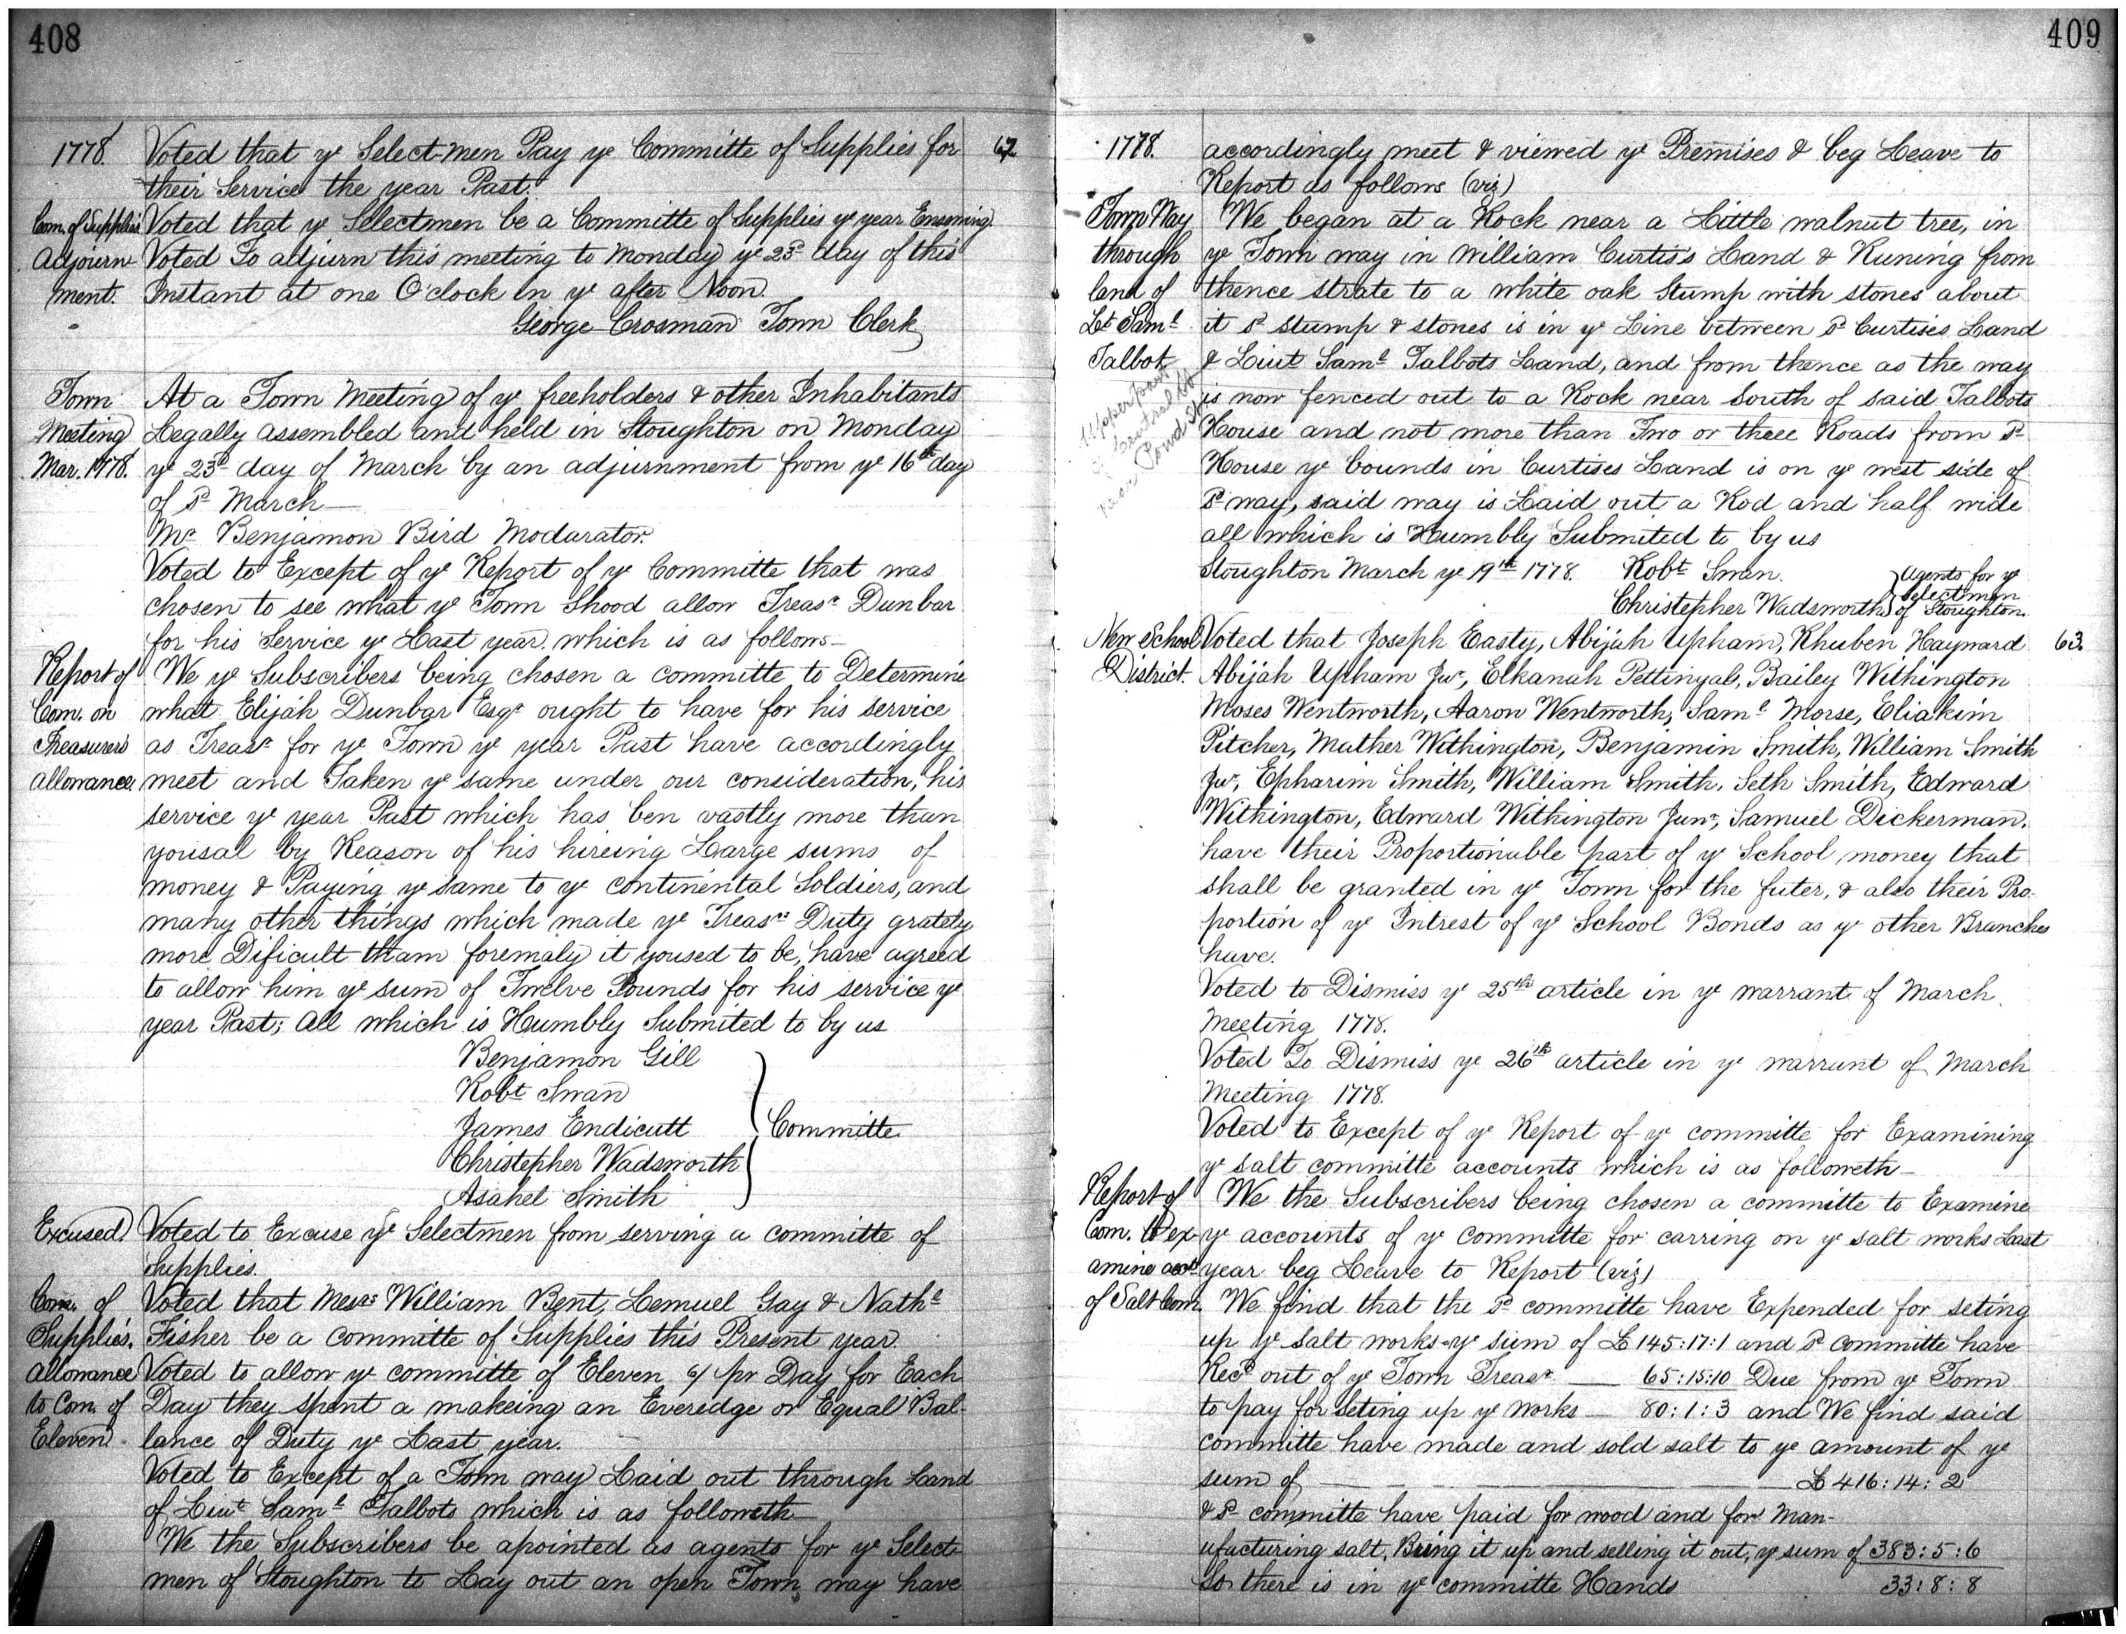 408
1778. Voted that ye Select-men Pay ye Committe of Supplies for 62
their Service the year Past.
Com. of Supplies Voted that ye Selectmen be a Committe of Supplies ye year Ensuing.
Adjourn- Voted To adjurn this meeting to Monday ye 23d day of this
ment. Instant at one O'clock in ye after Noon.
George Crosman Town Clerk
Town At a Town Meeting of ye freeholders & other Inhabitants
Meeting Legally assembled and held in Stoughton on Monday
Mar. 1778. ye 23d day of March by an adjurnment from ye 16th day
of sd March—
Mr Benjamon Bird Modarator.
Voted to Except of ye Report of ye Committe that was
chosen to see what ye Town Shood allow Treasr Dunbar
for his Service ye Last year which is as follows—
Report of We ye Subscribers being chosen a committe to Determine
Com. on what Elijah Dunbar Esqr ought to have for his service
Treasurers as Treasr for ye Town ye year Past have accordingly
allowance. meet and Taken ye same under our consideration, his
service ye year Past which has ben vastly more than
yousal by Reason of his hireing Large sums of
money & Paying ye same to ye continental Soldiers, and
many other things which made ye Treasrs Duty grately
more Dificult tham foremaly it yoused to be, have agreed
to allow him ye sum of Twelve Pounds for his service ye
year Past; all which is Humbly Submited to by us
Benjamon Gill
Robt Swan
James Endicutt } Committe
Christepher Wadsworth
Asahel Smith
Excused Voted to Excuse ye Selectmen from serving a committe of
Supplies.
Com. of Voted that Messrs William Bent, Lemuel Gay & Nathl
Supplies. Fisher be a committe of Supplies this Present year.
Allowance Voted to allow ye committe of Eleven 6/ pr Day for Each
to Com. of Day they spent a makeing an Everidge or Equal Bal-
Eleven lance of Duty ye Last year.
Voted to Except of a Town way Laid out through Land
of Liut Saml Talbots which is as followeth—
We the Subscribers be apointed as agents for ye Select-
men of Stoughton to Lay out an open Town way have
409
1778. accordingly meet & viewed ye Premises & beg Leave to
Report as follows (viz)
Town Way We began at a Rock near a Little walnut tree, in
through ye Town way in William Curtiss Land & Runing from
land of thence strate to a white oak Stump with stones about
Lt Saml it sd stump & stones is in ye Line between sd Curtises Land
Talbot & Liut Saml Talbots Land, and from thence as the way
is now fenced out to a Rock near South of said Talbots
House and not more than Two or three Roads from sd
House ye bounds in Curtises Land is on ye west side of
sd way, said way is Laid out a Rod and half wide
all which is Humbly Submited to by us
Upper part
of Central St
near Pond St
Stoughton March ye 19th 1778. Robt Swan. } Agents for ye
Selectmen
Christepher Wadsworth of Stoughton.
New School Voted that Joseph Easty, Abijah Upham, Rhuben Hayward 63.
District. Abijah Upham Jur, Elkanah Pettinyal, Bailey Withington
Moses Wentworth, Aaron Wentworth, Saml Morse, Eliakim
Pitcher, Mather Withington, Benjamin Smith, William Smith
Jur, Epharim Smith, William Smith, Seth Smith, Edward
Withington, Edward Withington Junr, Samuel Dickerman,
have their Proportionable part of ye School money that
shall be granted in ye Town for the futer, & also their Pro-
portion of ye Intrest of ye School Bonds as ye other Branches
have.
Voted to Dismiss ye 25th article in ye warrant of March
Meeting 1778.
Voted To Dismiss ye 26th article in ye warrant of March
Meeting 1778.
Voted to Except of ye Report of ye committe for Examining
ye salt committe accounts which is as followeth—
Report of We the Subscribers being chosen a committe to Examine
Com. to ex- ye accounts of ye committe for carring on ye salt works Last
amine acct year beg Leave to Report (viz)
of Salt Com. We find that the sd committe have Expended for seting
up ye salt works ye sum of £145:17:1 and sd committe have
Recd out of ye Town Treasr — 65:15:10 Due from ye Town
to pay for seting up ye works — 80:1:3 and We find said
committe have made and sold salt to ye amount of ye
sum of — £416:14:2
& sd committe have paid for wood and for Man-
ufacturing salt, Bring it up and selling it out, ye sum of 383:5:6
So there is in ye committe Hands 33:8:8